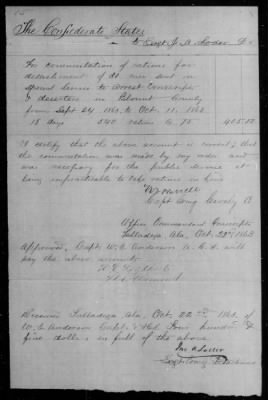 The Confederate States
To Capt J. A. Dr
For commutation of rations for
detachment of 30 men sent in
special service to arrest conscripts
& deserters in Blount County
from Sept 24 1863 to Oct. 11, 1863
18 days 540 rations @ 75 405.00
I certify that the above account is correct; that
the commutation was made by my order and
was necessary for the public service it
being impracticable to take rations in kind
Capt Comg Cavalry
Office Commandant Conscripts
Talladega, Ala, Oct. 22nd 1863
Approved, Capt. W. E. Anderson A. C. S. will
pay the above account
Received Talladega, Ala, Oct 22nd 1863, of
W. E. Anderson Capt. & Four hundred &
five dollars in full of the above
Jno A.
Capt Comg